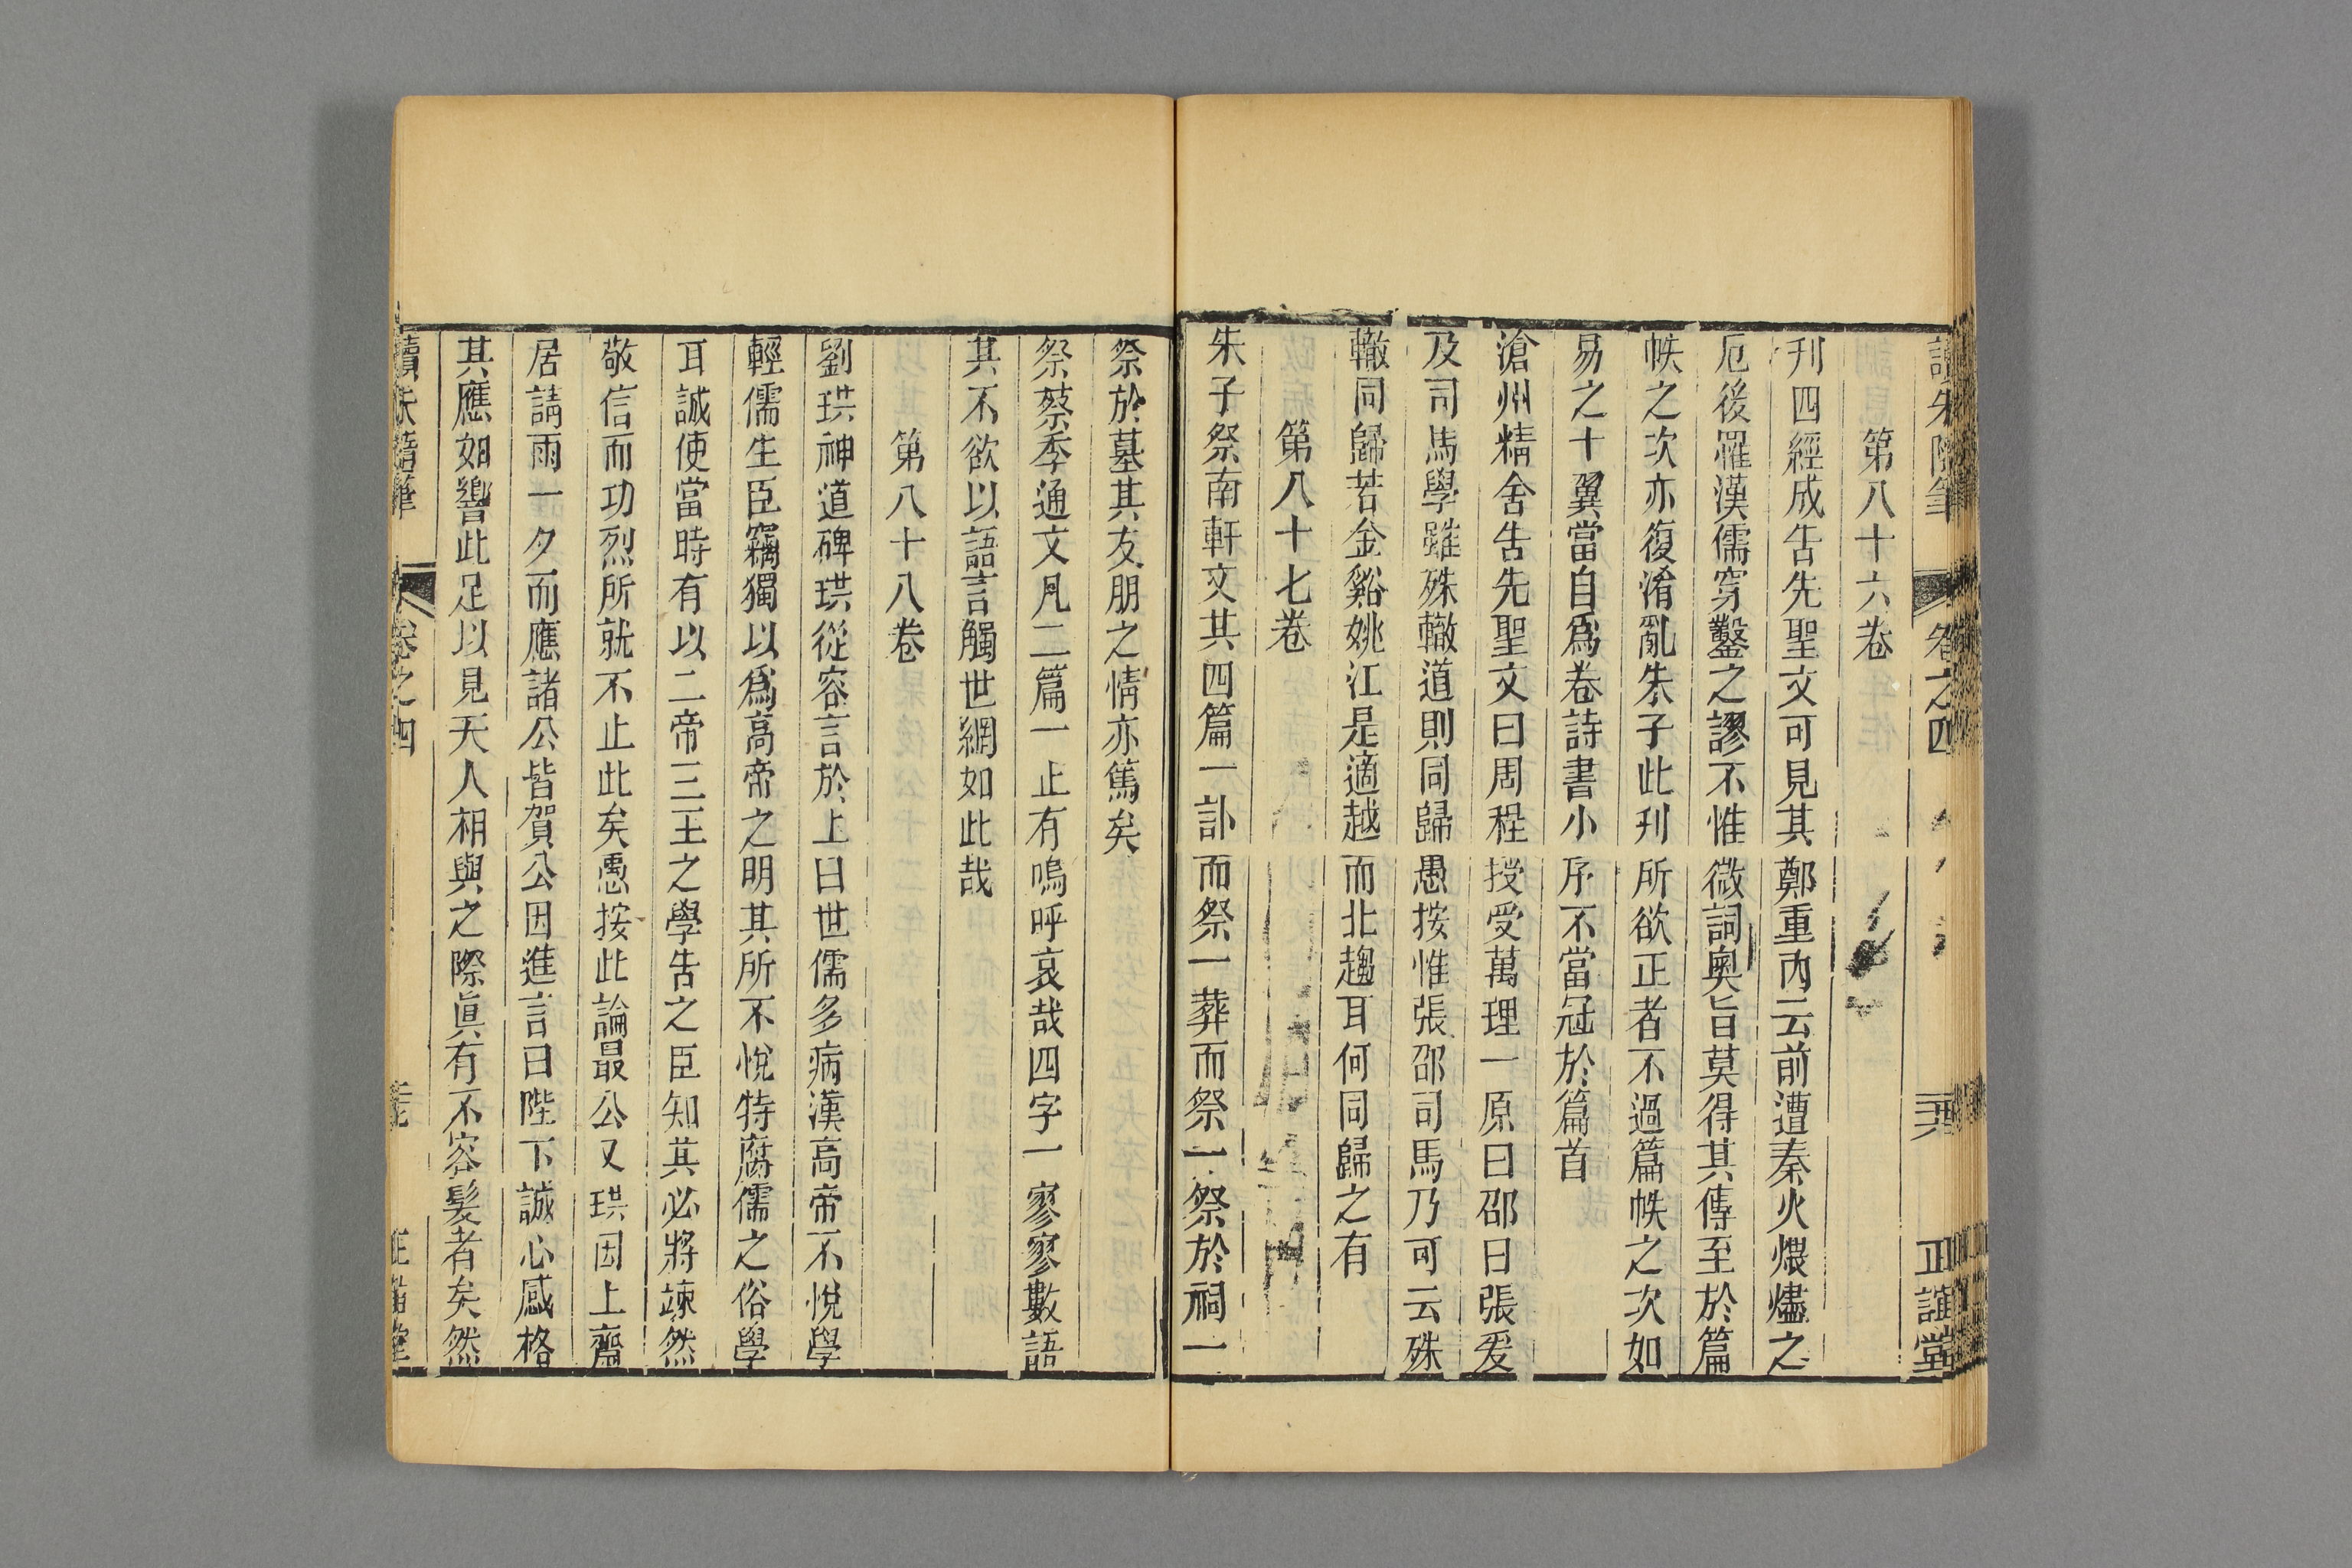 讀朱隨筆 卷之四 正誼堂
第八十六卷
刋四經成告先聖文可見其鄭重內云前遭秦火煨燼之
厄後罹漢儒穿鑿之謬不惟微詞奧旨莫得其傳至於篇
帙之次亦復淆亂朱子此刋所欲正者不過篇帙之次如
易之十翼當自爲卷詩書小序不當冠於篇首
滄州精舍告先聖文曰周程授受萬理一原曰邵曰張爰
及司馬學雖殊轍道則同歸愚按惟張邵司馬乃可云殊
轍同歸若金谿姚江是適越而北趨耳何同歸之有
第八十七卷
朱子祭南軒文其四篇一訃而祭一葬而祭一祭於祠一
祭於墓其友朋之情亦篤矣
祭蔡季通文凡二篇一止有嗚呼哀哉四字一寥寥數語
其不欲以語言觸世網如此哉
第八十八卷
劉珙神道碑珙從容言於上曰世儒多病漢高帝不悅學
輕儒生臣竊獨以爲高帝之明其所不悅特腐儒之俗學
耳誠使當時有以二帝三王之學告之臣知其必將竦然
敬信而功烈所就不止此矣愚按此論最公又珙因上齋
居請雨一夕而應諸公皆賀公因進言曰陛下誠心感格
其應如響此足以見天人相與之際眞有不容髮者矣然
讀朱隨筆 卷之四 正誼堂